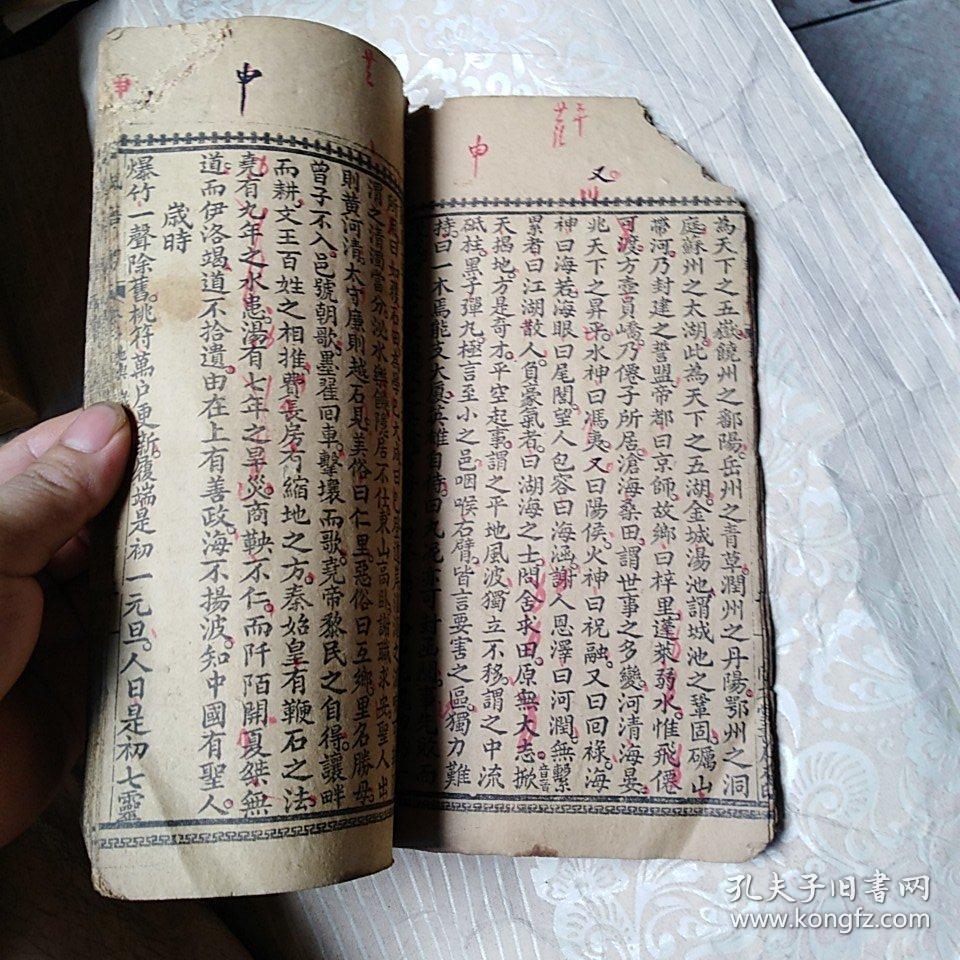 艹 三
許
申
又
川
為天下之五嶽饒州之鄱陽岳州之青草潤州之丹陽鄂州之洞
庭蘇州之太湖此為天下之五湖金城湯池謂城池之鞏固礪山
帶河乃封建之誓盟帝都曰京師故鄉曰梓里蓬萊弱水惟飛僊
可渡方壼員嶠乃僊子所居滄海桑田謂世事之多變河清海晏
兆天下之昇平水神曰馮夷又曰陽侯火神曰祝融又曰回祿海
神曰海若海眼曰尾閭望人包容曰海涵謝人恩澤曰河潤無繫
累者曰江湖散人負豪氣者曰湖海之士問舍求田原無大志掀
天揭地方是奇才平空起事謂之平地風波獨立不移謂之中流
砥柱黑子彈丸極言至小之邑咽喉右臂皆言要害之區獨力難
持曰一木焉能支大廈英雄自恃曰丸泥亦可封函關事先敗而
申
則黃河清太守廉則越石見美俗曰仁里惡俗曰互鄉里名勝母
曾子不入邑號朝歌墨翟回車擊壤而歌堯帝黎民之自得讓畔
而耕文王百姓之相推費長房有縮地之方秦始皇有鞭石之法
堯有九年之水患湯有七年之旱災商鞅不仁而阡陌開夏桀無
道而伊洛竭道不拾遺由在上有善政海不揚波知中國有聖人
歲時
爆竹一聲除舊桃符萬户更新履端是初一元旦人日是初七靈
孔夫子旧書网
www.kongfz.com